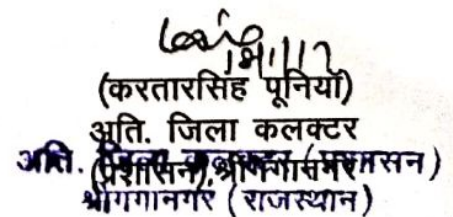 (करतारसिंह पूनियाँ)
अति. जिला कलक्टर
(प्रशासन), श्रीगंगानगर
अति. जिला कलक्टर (प्रशासन)
श्रीगंगानगर (राजस्थान)